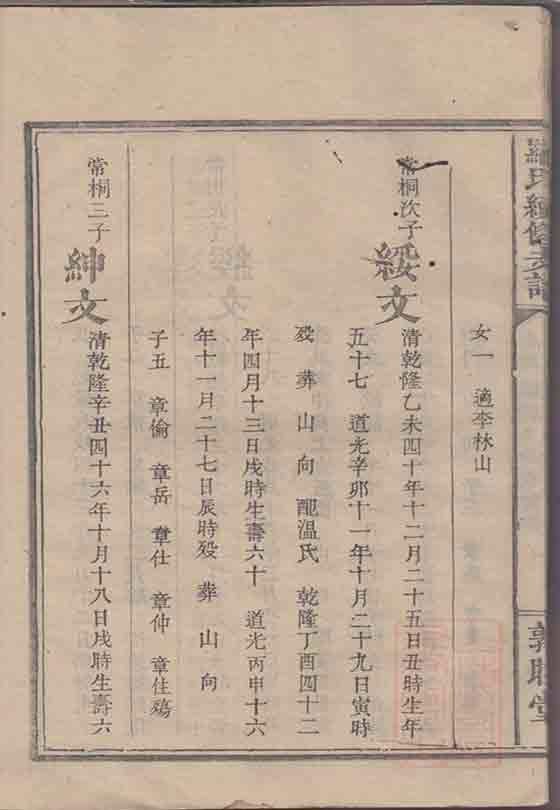 氏續修支譜
女一 適李林山
常桐次子 綏文 清乾隆乙未四十年十二月二十五日丑時生年
五十七 道光辛卯十一年十月二十九日寅時
歿 葬 山 向 配溫氏 乾隆丁酉四十二
年四月十三日戌時生壽六十 道光丙申十六
年十一月二十七日辰時歿 葬 山 向
子五 章倫 章岳 章仕 章仲 章佳殤
常桐三子 紳文 清乾隆辛丑四十六年十月十八日戌時生壽六